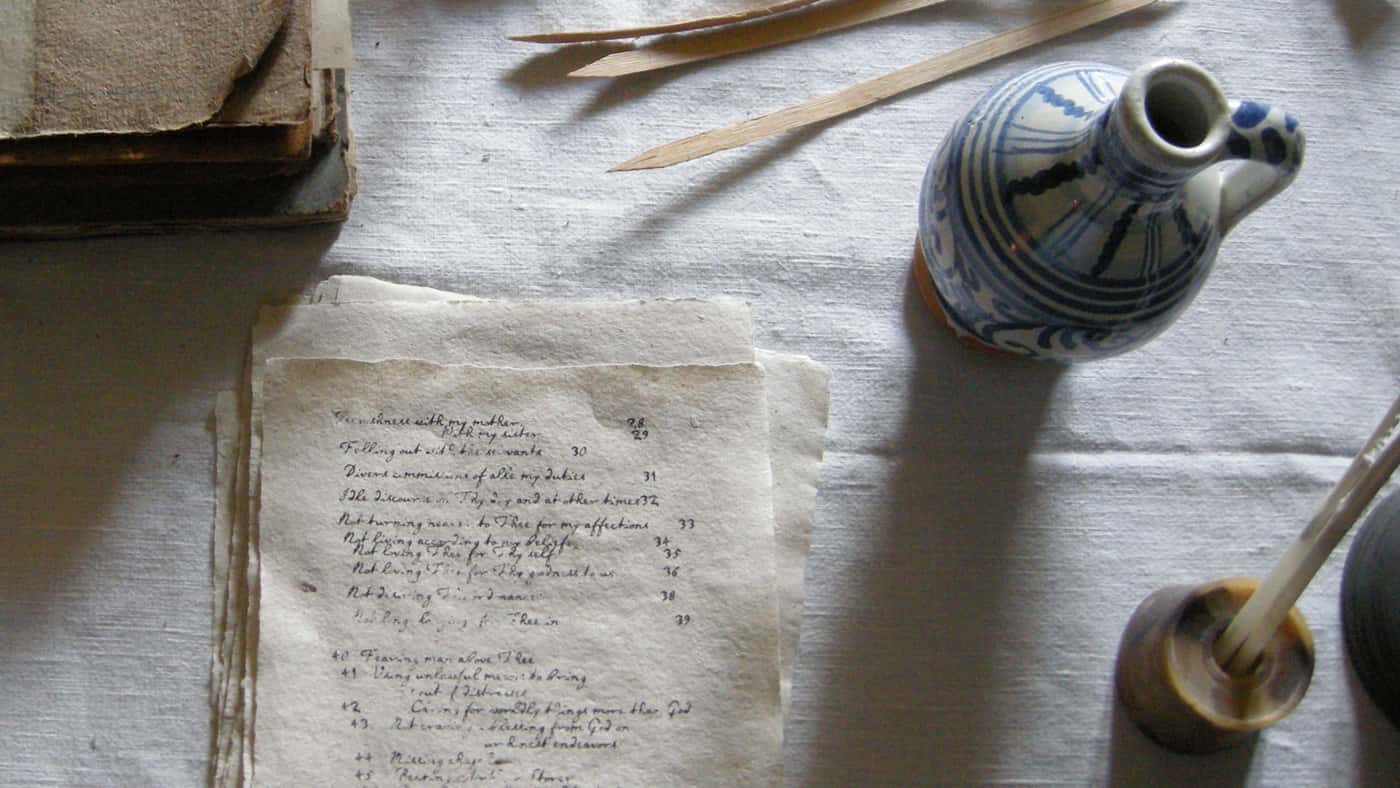 with my mother 28
With my sister 29
Falling out with the servants 30
Divers commissions of alle my duties 31
Idle discourse on Thy day and at other times 32
Not turning nearer to Thee for my affections 33
Not living according to my belief 34
Not loving Thee for Thy self 35
Not loving Thee for Thy goodness to us 36
Not desiring Thy ordinances 38
Not long for Thee in 39
40 Fearing man above Thee
41 Using unlawful means to bring
out of distresses
42 Caring for worldly things more than God
43 Not craving a blessing from God on
our honest endeavors
44 Missing chapel
45